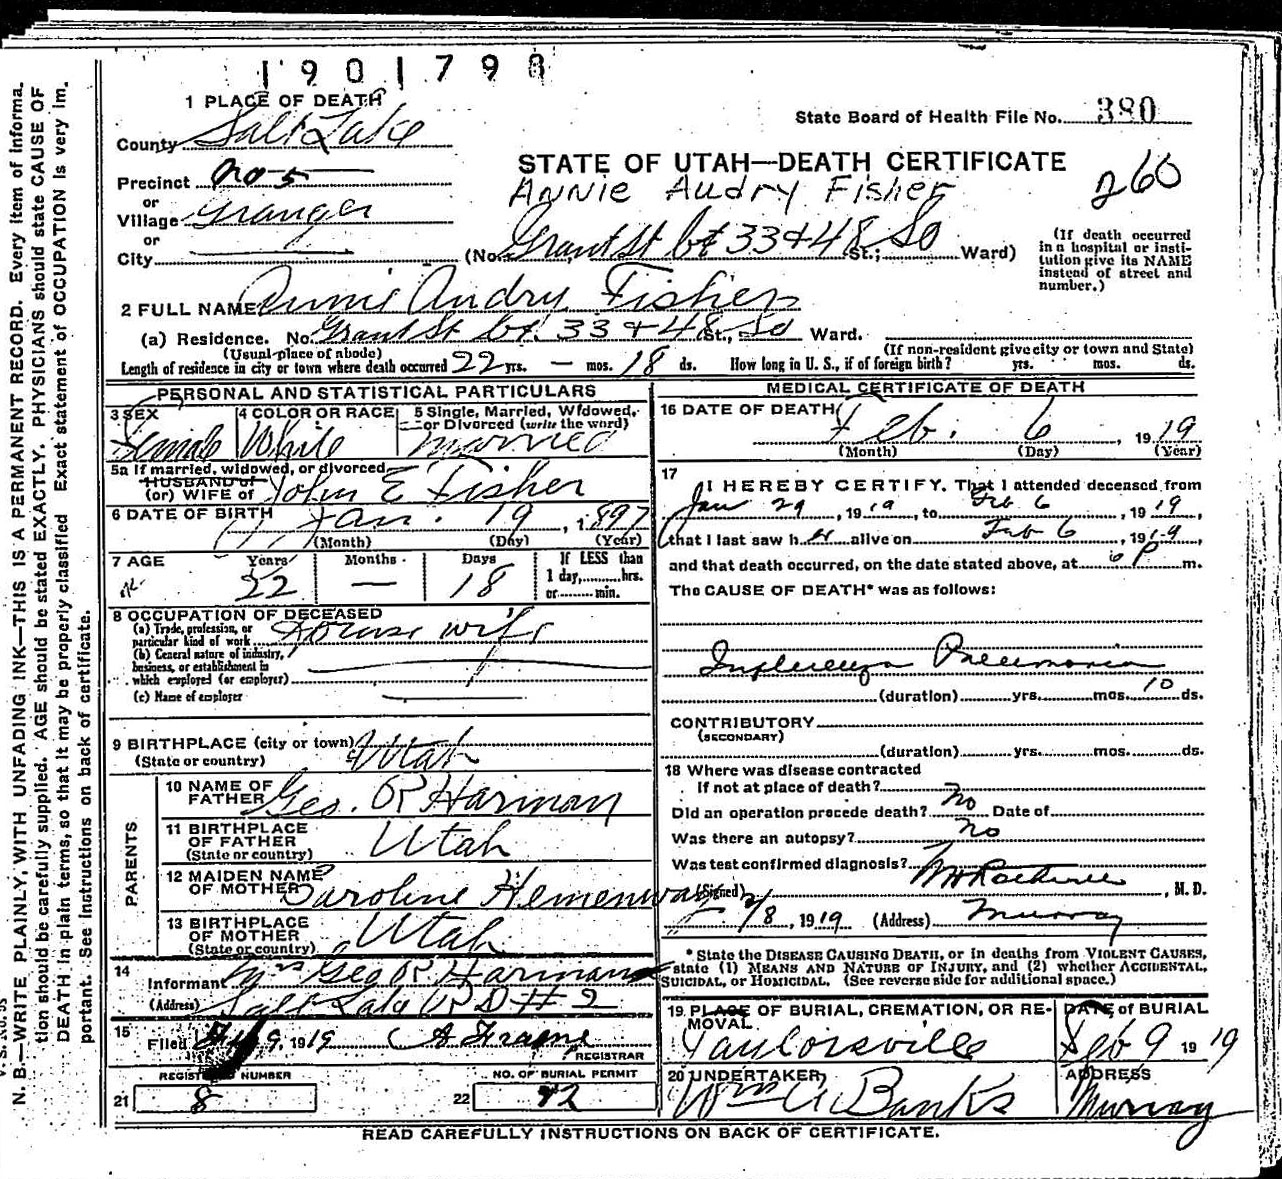 1901798
1 PLACE OF DEATH
State Board of Health File No. 380
County Salt Lake
STATE OF UTAH—DEATH CERTIFICATE
Precinct No 5
Annie Audry Fisher
260
or
Village Granger
or
City
(No. Grant St bt 33 & 48 So St.; Ward)
(If death occurred in a hospital or institution give its NAME instead of street and number.)
2 FULL NAME Annie Audry Fisher
(a) Residence. No. Grant St bt. 33 & 48 St., So Ward.
(Usual place of abode) (If non-resident give city or town and State)
Length of residence in city or town where death occurred 22 yrs. — mos. 18 ds. How long in U. S., if of foreign birth? yrs. mos. ds.
PERSONAL AND STATISTICAL PARTICULARS
3 SEX Female
4 COLOR OR RACE White
5 Single, Married, Widowed, or Divorced (write the word) Married
5a If married, widowed, or divorced
HUSBAND of
(or) WIFE of John E Fisher
6 DATE OF BIRTH Jan. 19, 1897
(Month) (Day) (Year)
7 AGE Years Months Days If LESS than
22 — 18 1 day, hrs.
or min.
8 OCCUPATION OF DECEASED
(a) Trade, profession, or particular kind of work House wife
(b) General nature of industry, business, or establishment in which employed (or employer)
(c) Name of employer
9 BIRTHPLACE (city or town)
(State or country) Utah
PARENTS
10 NAME OF FATHER Geo. R Harman
11 BIRTHPLACE OF FATHER (State or country) Utah
12 MAIDEN NAME OF MOTHER Caroline Hemenway
13 BIRTHPLACE OF MOTHER (State or country) Utah
14
Informant Mrs Geo R Harman
(Address) Salt Lake R D # 2
15
Filed Feb 9, 1919
REGISTRAR
REGISTERED NUMBER
21 8
NO. OF BURIAL PERMIT
22 42
MEDICAL CERTIFICATE OF DEATH
16 DATE OF DEATH Feb. 6, 1919
(Month) (Day) (Year)
17
I HEREBY CERTIFY, That I attended deceased from
Jan 29, 1919, to Feb 6, 1919,
that I last saw her alive on Feb 6, 1919,
and that death occurred, on the date stated above, at 6 P m.
The CAUSE OF DEATH* was as follows:
Influenza Pneumonia
(duration) yrs. mos. 10 ds.
CONTRIBUTORY
(SECONDARY)
(duration) yrs. mos. ds.
18 Where was disease contracted
If not at place of death?
Did an operation precede death? No Date of
Was there an autopsy? No
Was test confirmed diagnosis?
(Signed) , M. D.
2/8, 1919 (Address) Murray
* State the DISEASE CAUSING DEATH, or in deaths from VIOLENT CAUSES,
state (1) MEANS AND NATURE OF INJURY, and (2) whether ACCIDENTAL,
SUICIDAL, or HOMICIDAL. (See reverse side for additional space.)
19 PLACE OF BURIAL, CREMATION, OR REMOVAL
Taylorsville
DATE of BURIAL
Feb 9 1919
20 UNDERTAKER
Wm A Banks
ADDRESS
Murray
READ CAREFULLY INSTRUCTIONS ON BACK OF CERTIFICATE.
N. B.—WRITE PLAINLY, WITH UNFADING INK—THIS IS A PERMANENT RECORD. Every item of informa-
tion should be carefully supplied. AGE should be stated EXACTLY. PHYSICIANS should state CAUSE OF
DEATH in plain terms, so that it may be properly classified. Exact statement of OCCUPATION is very im-
portant. See instructions on back of certificate.